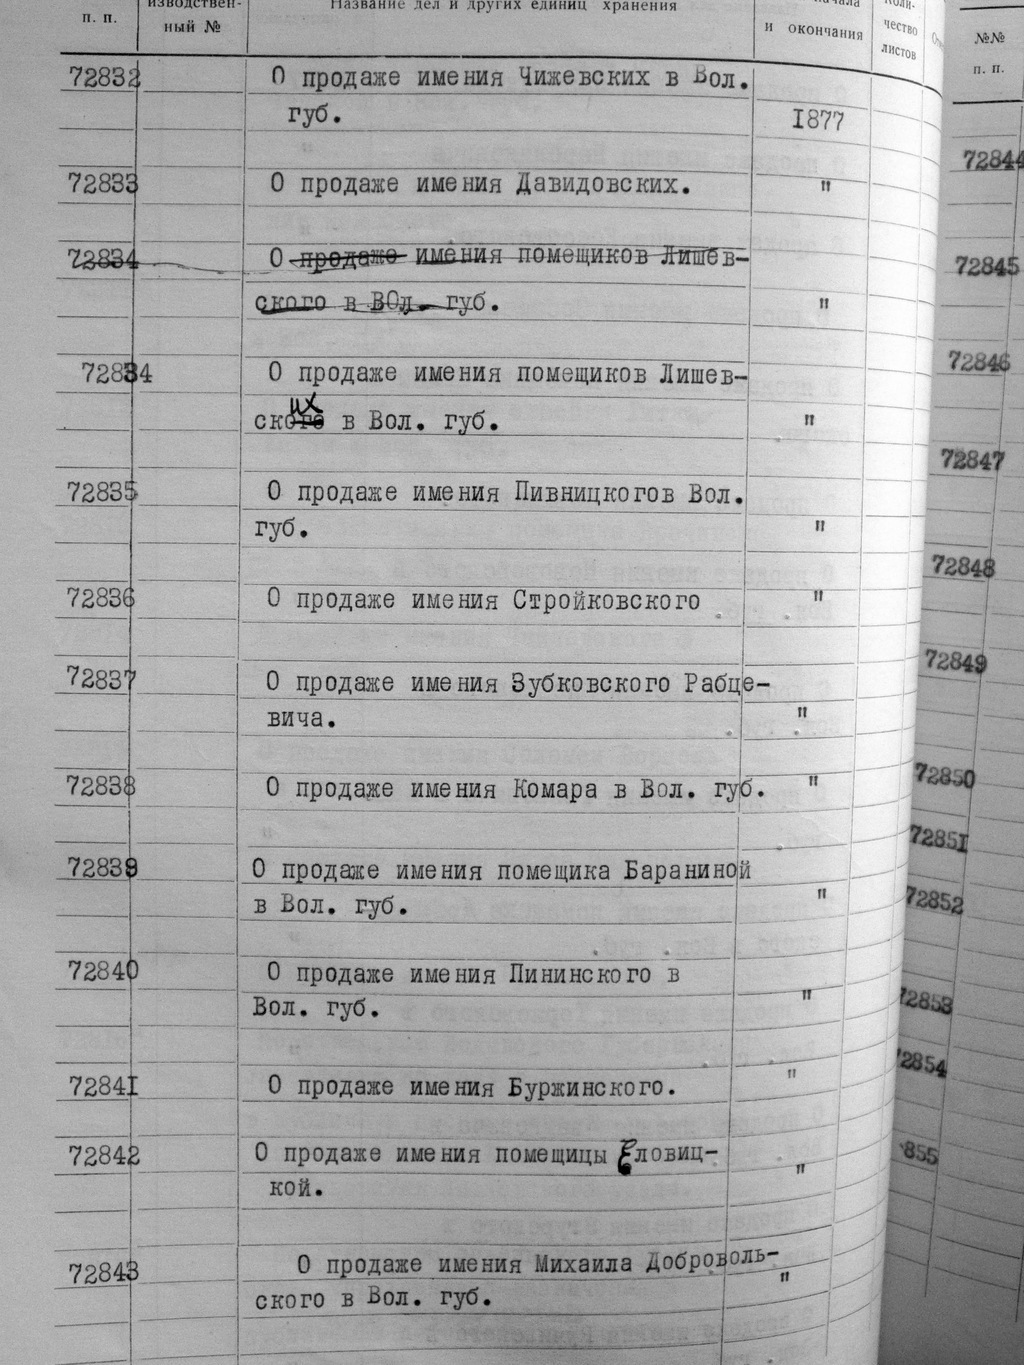 п. п. изводствен- Название дел и других единиц хранения начала Коли-
ный № и окончания чество №№
листов п. п.
72832 О продаже имения Чижевских в Вол.
губ. 1877
72833 О продаже имения Давидовских. "
72834 О продаже имения помещиков Лишев-
ского в ВОл. губ. "
72834 О продаже имения помещиков Лишев-
ских в Вол. губ. "
72835 О продаже имения Пивницкогов Вол.
губ. "
72836 О продаже имения Стройковского "
72837 О продаже имения Зубковского Рабце-
вича. "
72838 О продаже имения Комара в Вол. губ. "
72839 О продаже имения помещика Бараниной
в Вол. губ. "
72840 О продаже имения Пининского в
Вол. губ. "
72841 О продаже имения Буржинского. "
72842 О продаже имения помещицы Еловиц-
кой. "
72843 О продаже имения Михаила Доброволь-
ского в Вол. губ. "
72844
72845
72846
72847
72848
72849
72850
72851
72852
72853
72854
855